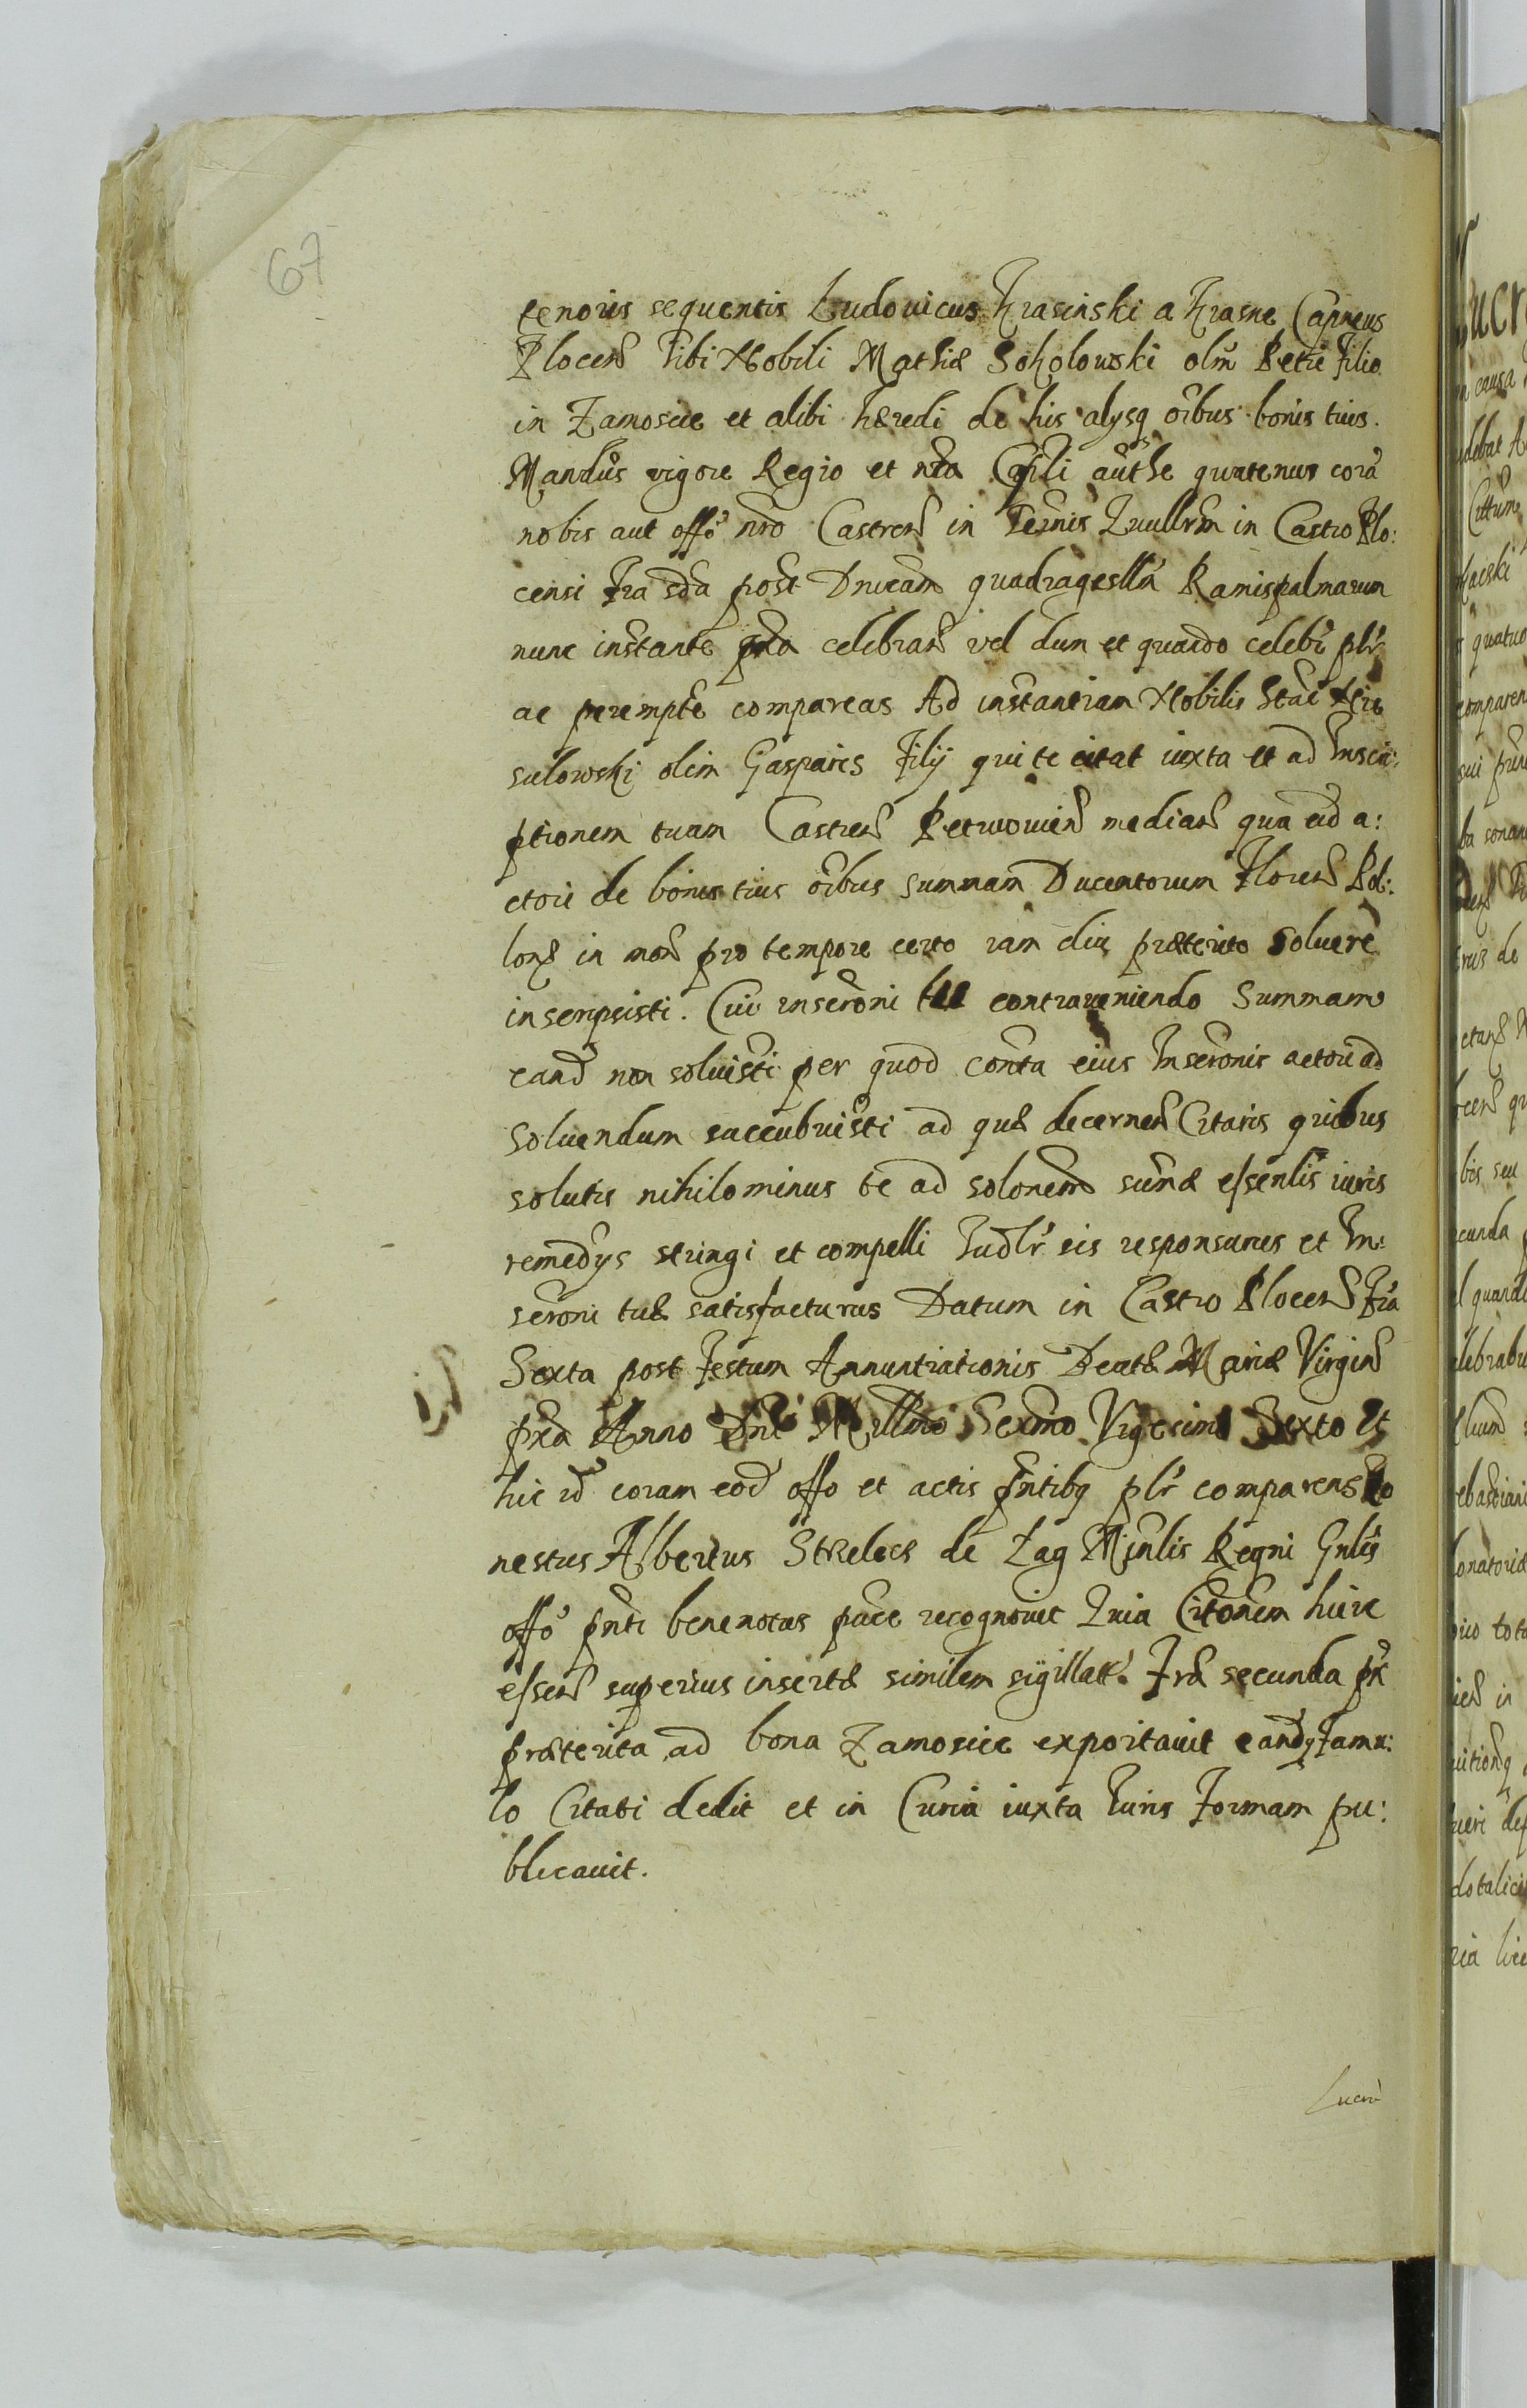 67
tenoris sequentis Ludouicus Krasinski a Krasne Capneus
Plocen Tibi Nobili Mathiæ Sokolowski olim Petri Filio
in Zamoscie et alibi hæredi de his alysq oibus bonis tuis.
Mandus vigore Regio et nra Cpili authe quatenus cora
nobis aut offo nro Castren in Termis Querellrm in Castro Plo:
censi fra scda post Dnicam quadragesllm Ramispalmarum
nunc instante pxa celebran vel dum et quando celebr plr
ac perempte compareas Ad instantiam Nobilis Stac
sulowski olim Gasparis Filij qui te citat iuxta et ad Inscri:
ptionem tuam Castren median qua eid a:
ctori de bonis tuis oibus summam Ducentorum Floren Pol:
lonx in mon pro tempore certo iam diu præterito soluere
inscripsisti. Cui inscroni tu contraueniendo Summam
eand non soluisti per quod conta eius Inscronis actori ad
soluendum succubuisti ad quæ decernen Citaris quibus
solutis nihilominus te ad solonem sumæ essenlis iuris
remedys stringi et compelli Iudlr eis responsurus et In:
scroni tuæ satisfacturus Datum in Castro Plocen Fria
Sexta post Festum Annuntiationis Beatæ Mariæ Virgin
pxa Anno Dni Millmo Sexmo Vigesimo Sexto Et
hic id coram eod offo et actis pntibq plr comparens Ho
nestus Albertus Strzelecz de Zag Minlis Regni Gnlis
offo pnti bene notus pnce recognouit Quia Citonem huic
essen superius insertæ similem sigillat. Fra secunda px
præterita ad bona Zamoscie exportauit eandq Famu:
lo Citati dedit et in Curia iuxta Iuris Formam pu:
blicauit.
Lucru